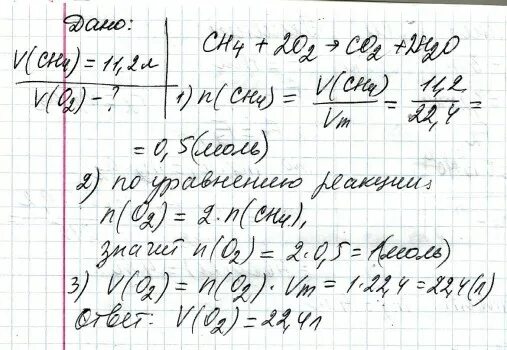 Дано:
V(CH4) = 11,2 л
V(O2) - ?
CH4 + 2O2 → CO2 + 2H2O
1) n(CH4) = V(CH4)/Vm = 11,2/22,4 =
= 0,5 (моль)
2) по уравнению реакции:
n(O2) = 2·n(CH4),
значит n(O2) = 2·0,5 = 1(моль)
3) V(O2) = n(O2)·Vm = 1·22,4 = 22,4(л)
Ответ: V(O2) = 22,4л